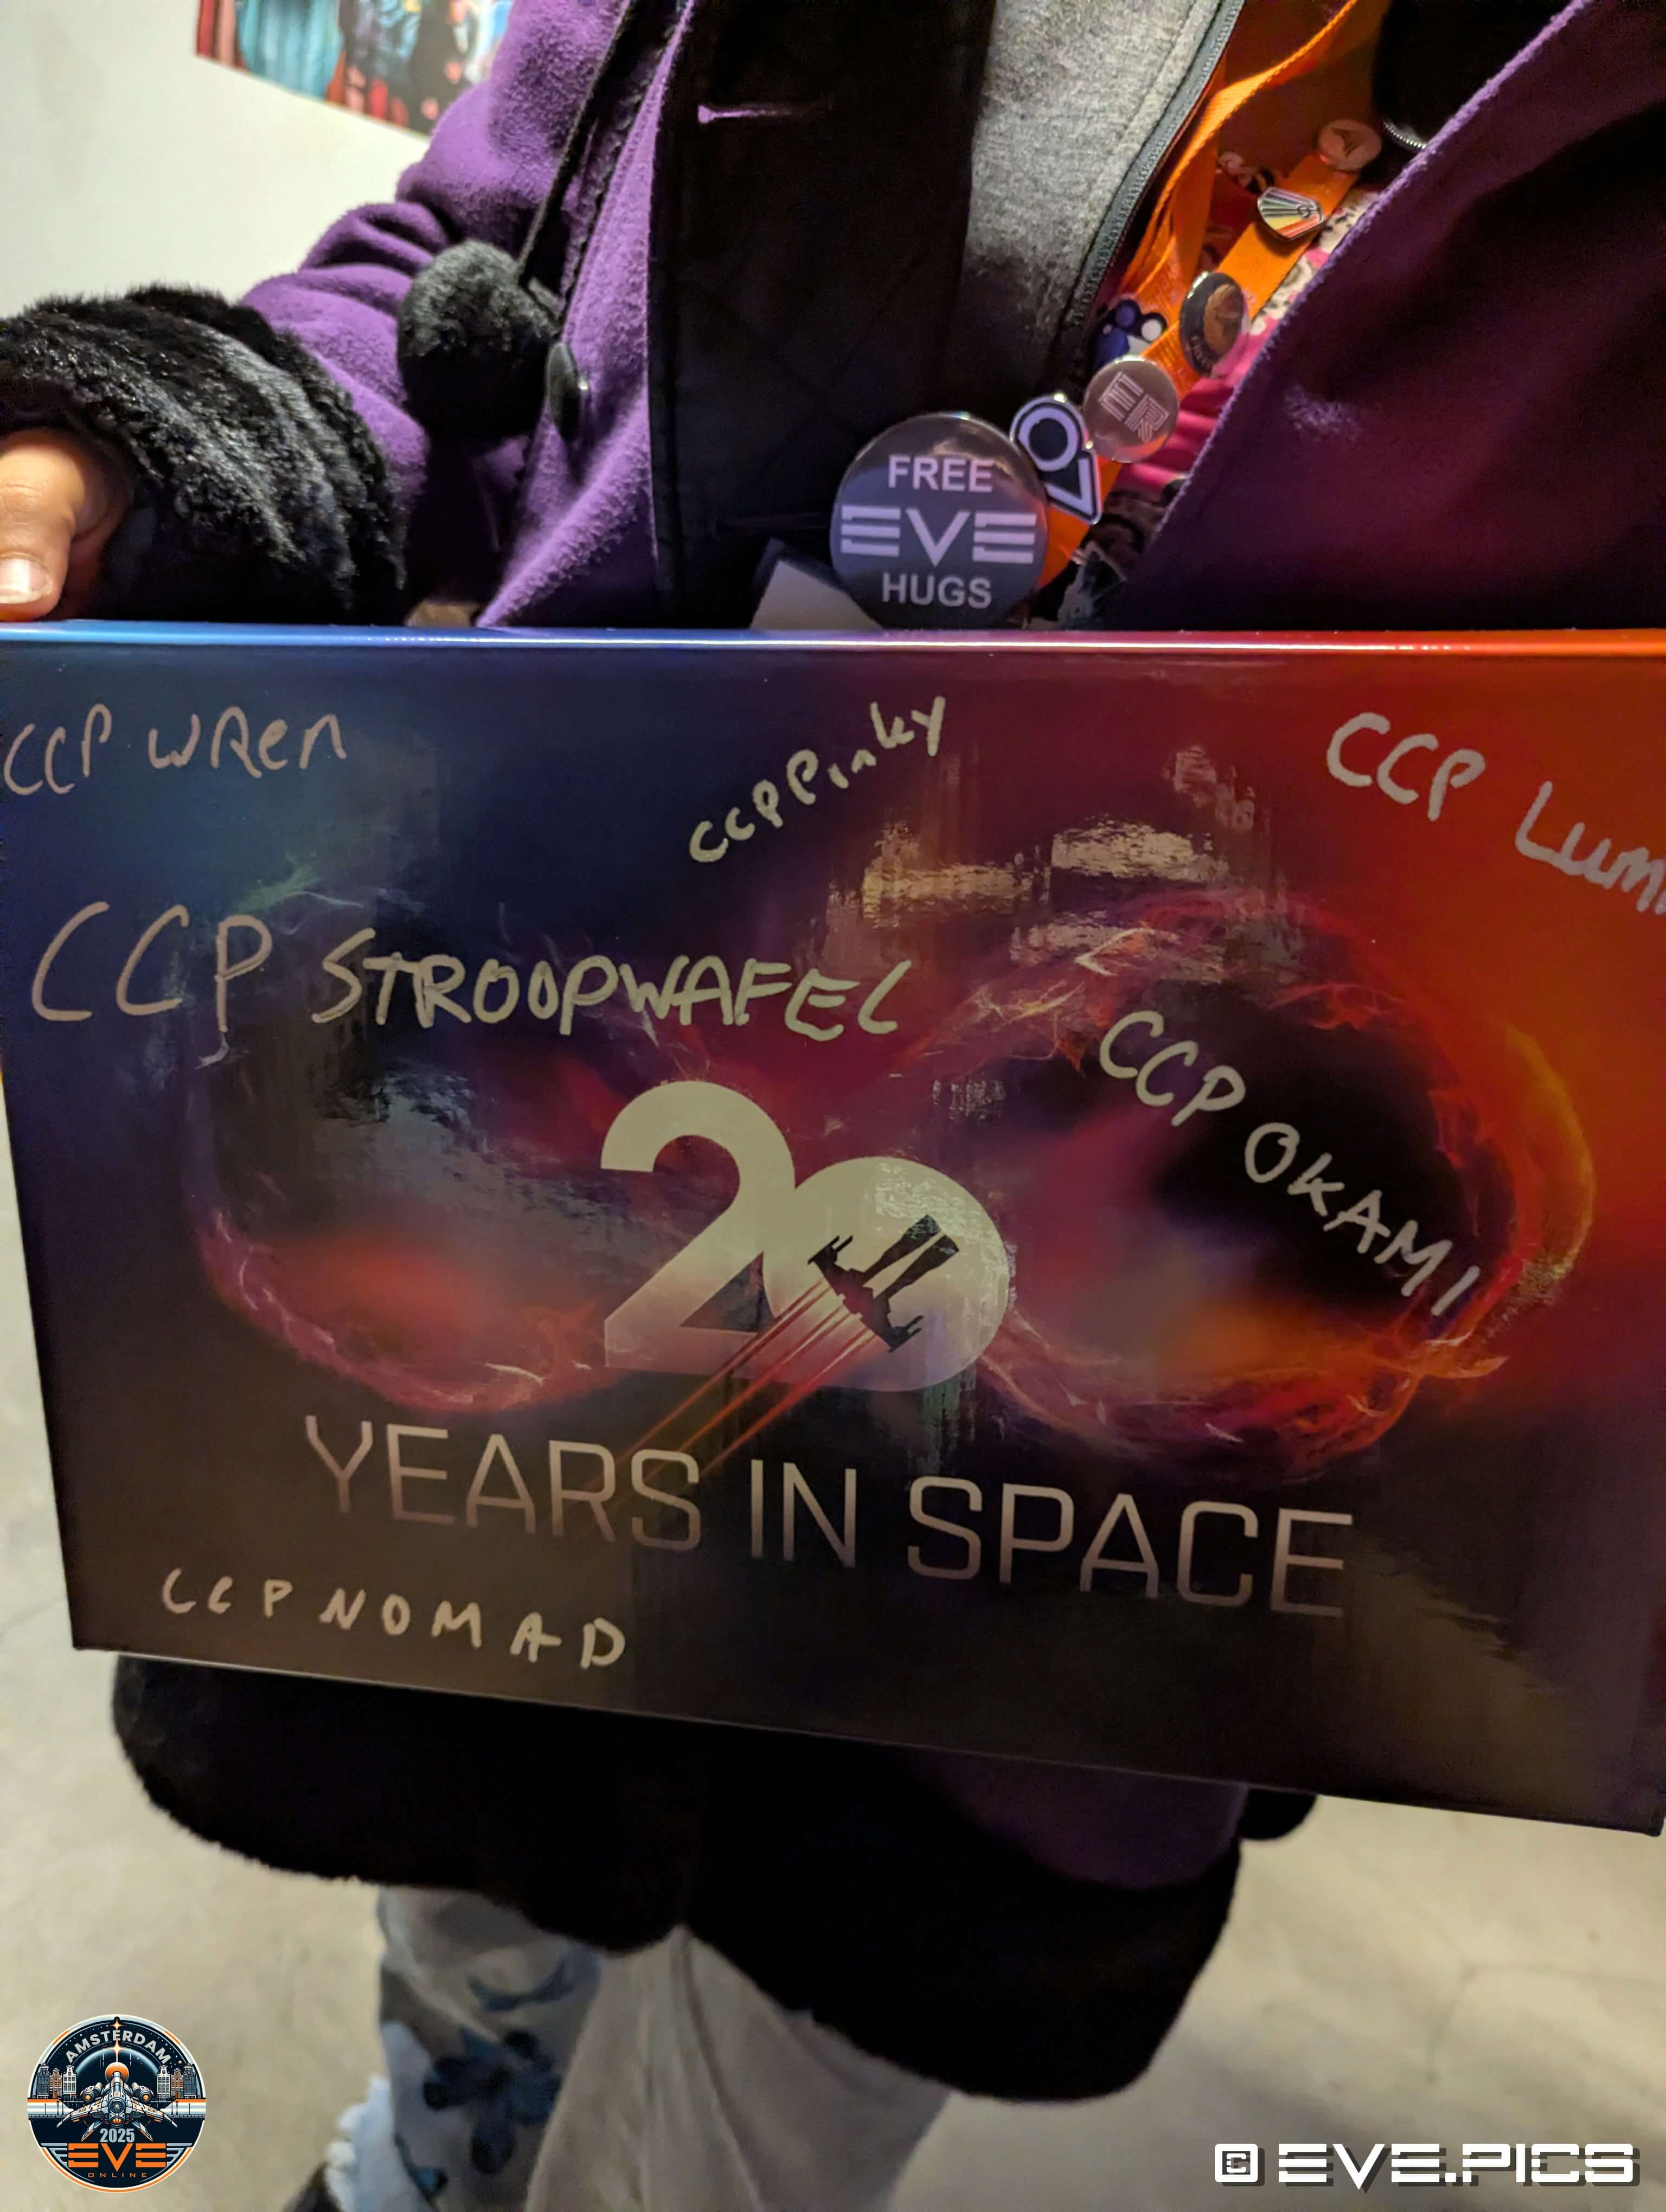 FREE
EVE
HUGS
ER
CCP WReN
CCPPinky
CCP Lum
CCP STROOPWAFEL
CCP OKAMI
20
YEARS IN SPACE
CCP NOMAD
AMSTERDAM
2025
EVE
ONLINE
© EVE.PICS